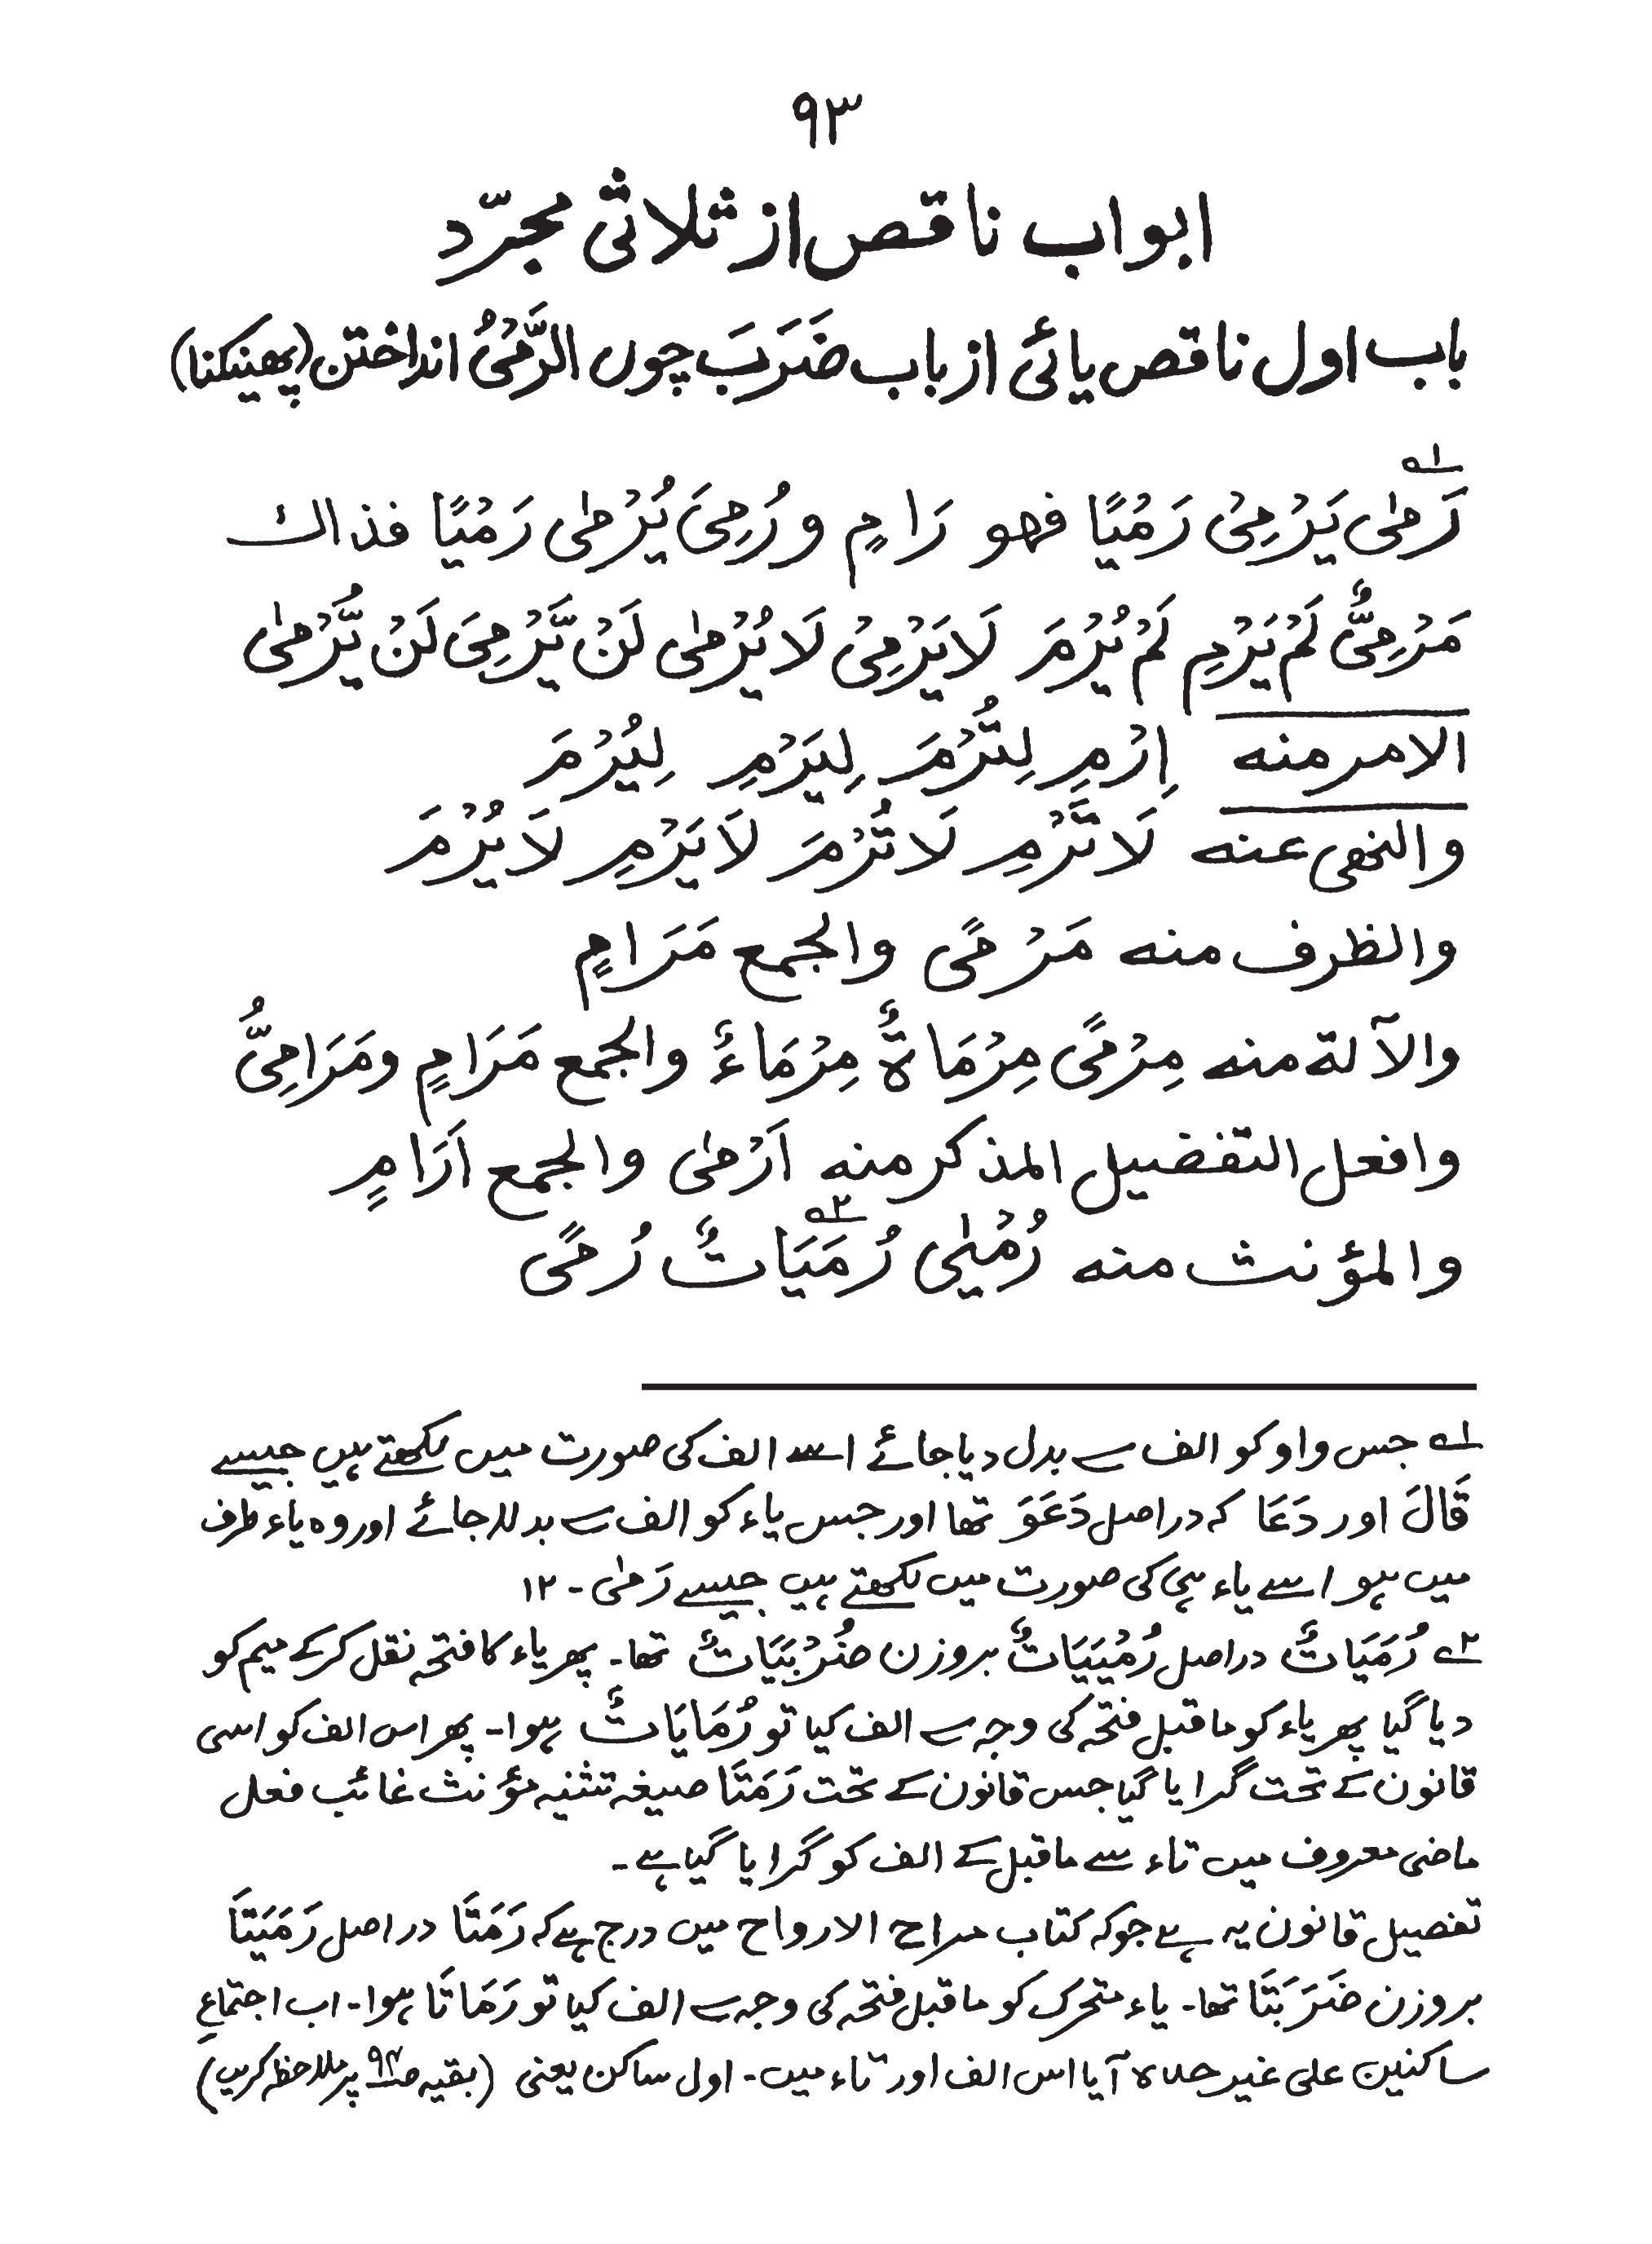 ۹۳
ابواب ناقص از ثلاثی مجرّد
باب اول ناقص یائی از باب ضَرَبَ چوں الرَّمْیُ انداختن (پھینکنا)
۱؎
رَمٰی یَرْمِیْ رَمْیًا فهو رَامٍ و رُمِیَ یُرْمٰی رَمْیًا فذاك
مَرْمِیٌّ لَمْ یَرْمِ لَمْ یُرْمَ لَا یَرْمِیْ لَا یُرْمٰی لَنْ یَّرْمِیَ لَنْ یُّرْمٰی
الامر منه اِرْمِ لِتُرْمَ لِیَرْمِ لِیُرْمَ
والنهی عنه لَا تَرْمِ لَا تُرْمَ لَا یَرْمِ لَا یُرْمَ
والظرف منه مَرْمًی والجمع مَرَامٍ
والآلة منه مِرْمًی مِرْمَاةٌ مِرْمَاءٌ والجمع مَرَامٍ ومَرَامِیُّ
وافعل التفضیل المذکر منه اَرْمٰی والجمع اَرَامٍ
والمؤنث منه رُمْیٰی رُمَیَاتٌ۲؎ رُمًی
۱؎ جس واو کو الف سے بدل دیا جائے اسے الف کی صورت میں لکھتے ہیں جیسے
قَالَ اور دَعَا کہ دراصل دَعَوَ تھا اور جس یاء کو الف سے بدلا جائے اور وہ یاء طرف
میں ہو اسے یاء ہی کی صورت میں لکھتے ہیں جیسے رَمٰی - ۱۲
۲؎ رُمَیَاتٌ دراصل رُمْیَیَاتٌ بروزن ضُرْبَیَاتٌ تھا۔ پھر یاء کا فتحہ نقل کرکے میم کو
دیا گیا پھر یاء کو ماقبل فتحہ کی وجہ سے الف کیا تو رُمَایَاتٌ ہوا۔ پھر اس الف کو اسی
قانون کے تحت گرایا گیا جس قانون کے تحت رَمَتَا صیغہ تثنیہ مؤنث غائب فعل
ماضی معروف میں تاء سے ماقبل کے الف کو گرایا گیا ہے۔
تفصیل قانون یہ ہے جو کہ کتاب مراح الارواح میں درج ہے کہ رَمَتَا دراصل رَمَیَتَا
بروزن ضَرَبَتَا تھا۔ یاء متحرک کو ماقبل فتحہ کی وجہ سے الف کیا تو رَمَاتَا ہوا۔ اب اجتماعِ
ساکنین علی غیر حدہ آیا اس الف اور تاء میں۔ اول ساکن یعنی (بقیہ ص۹۴ پر ملاحظہ کریں)